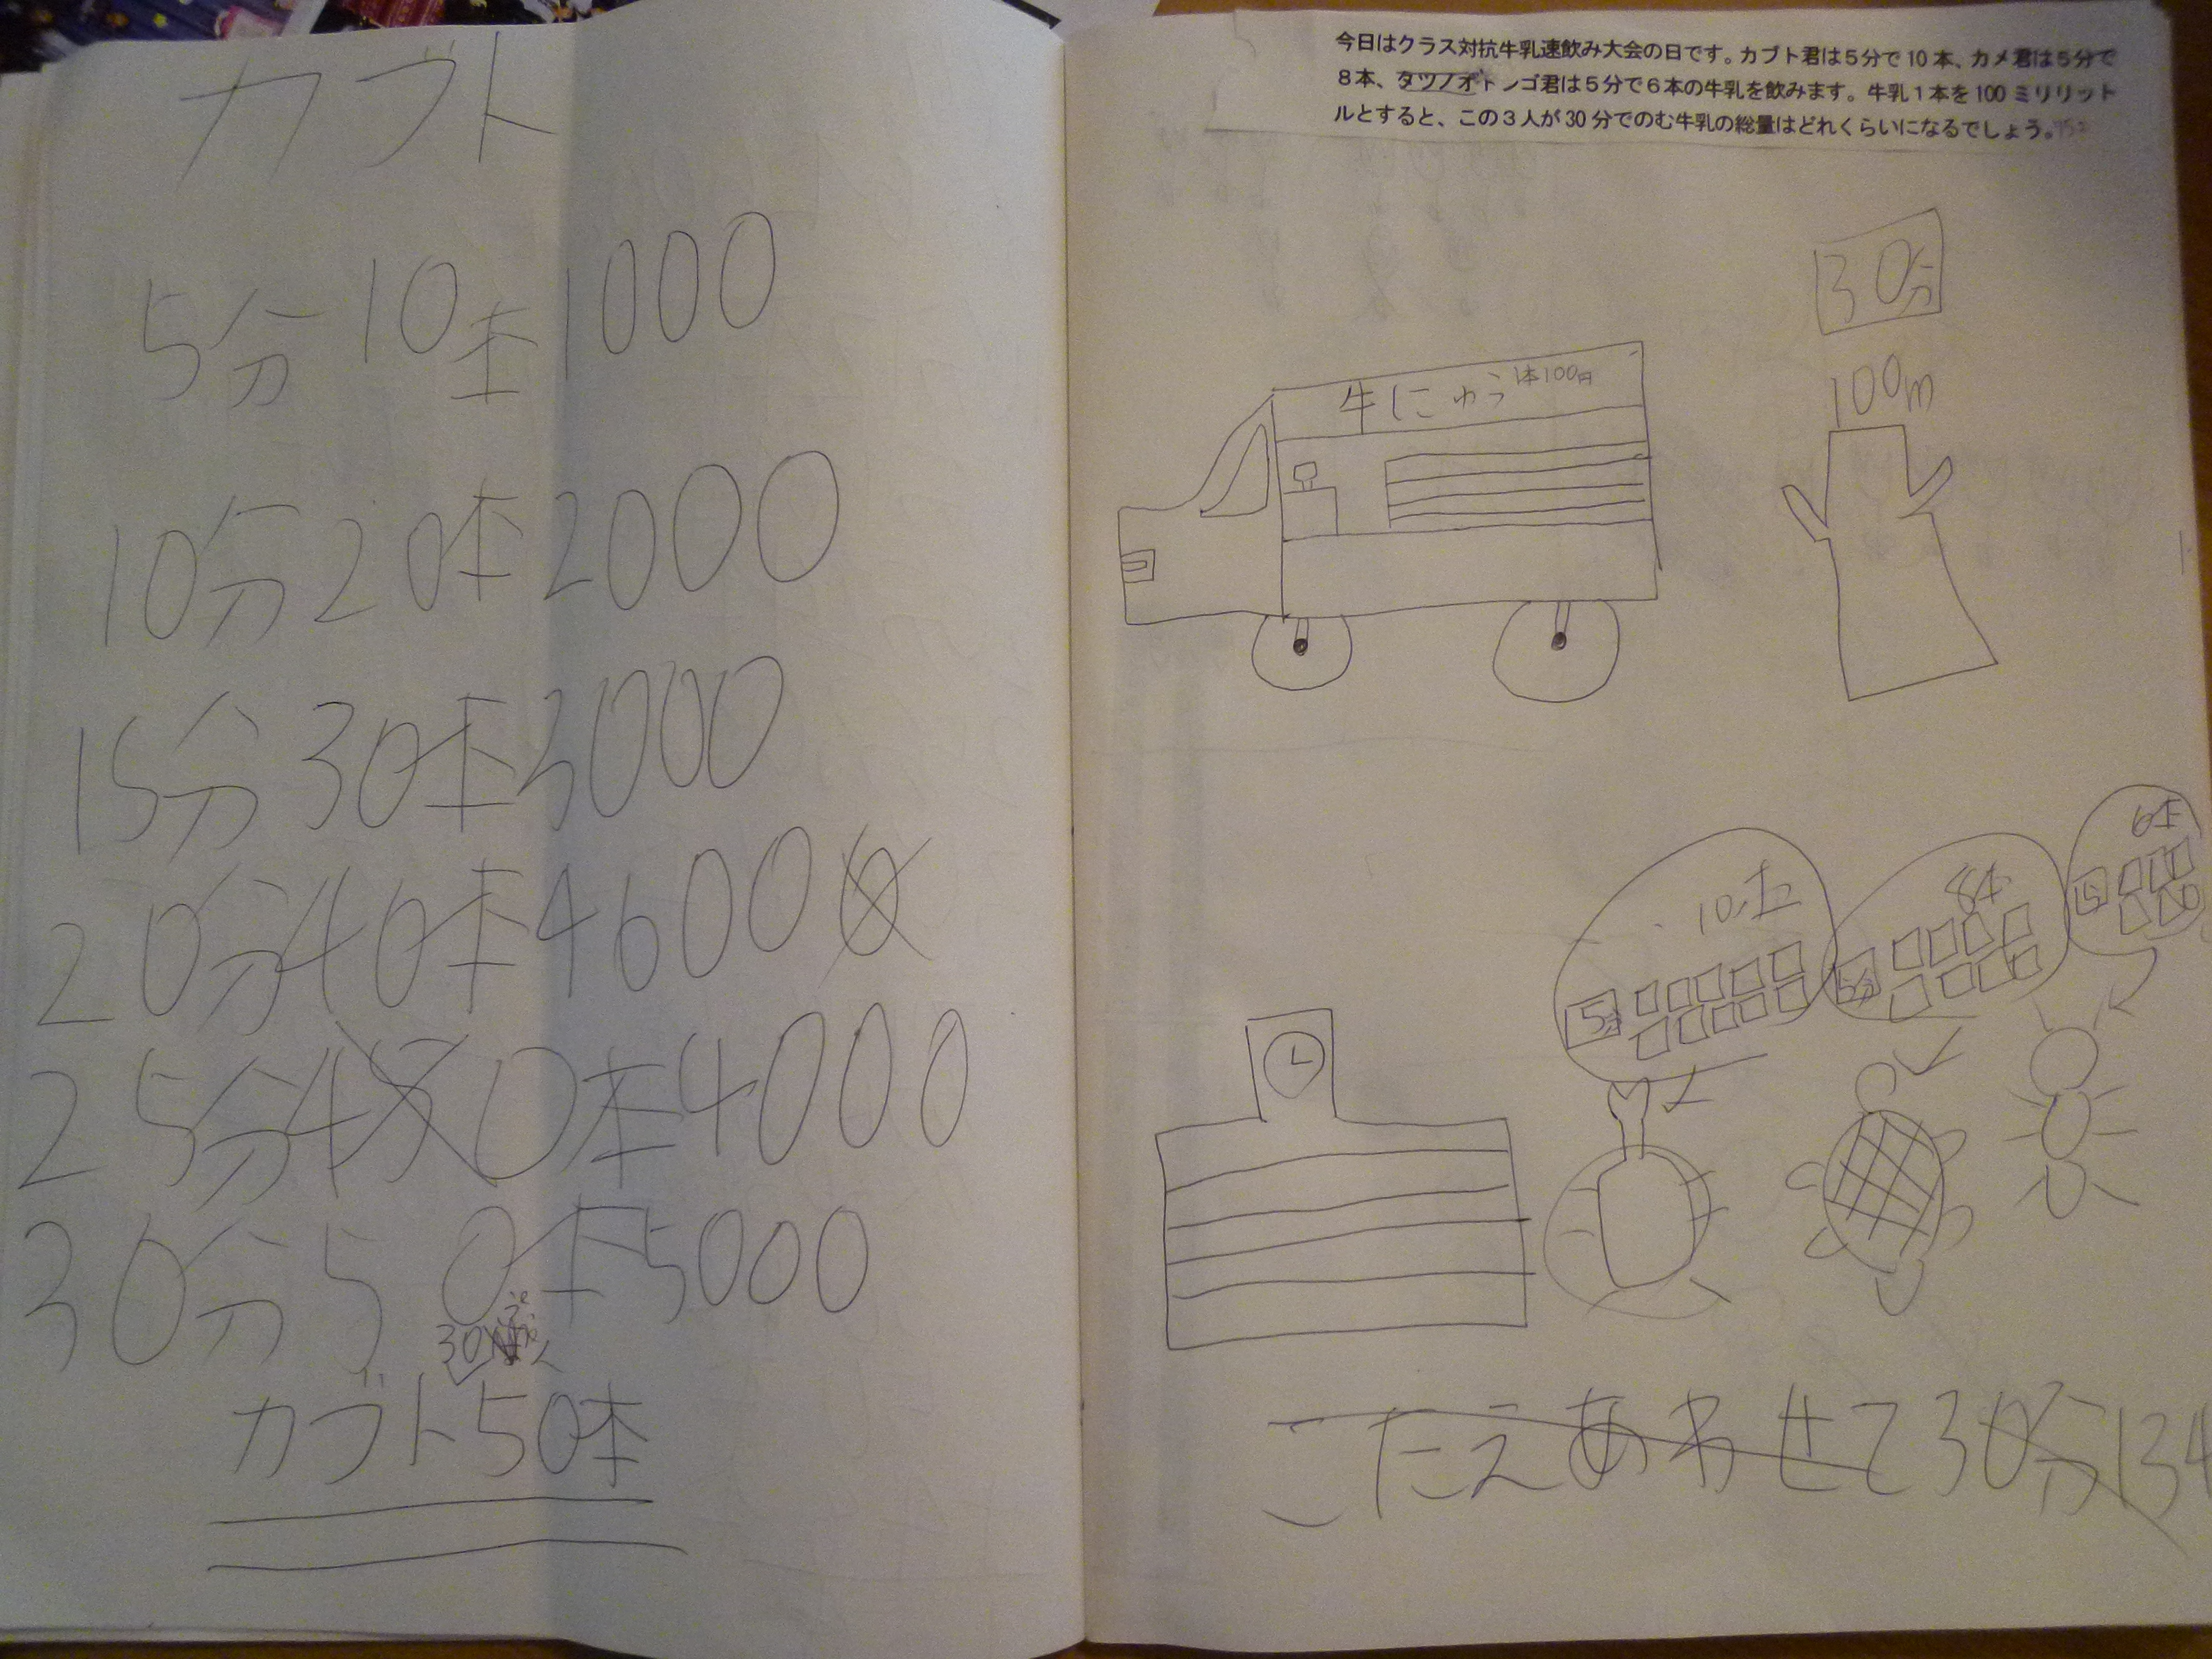 カブト
5分 10本 1000
10分 20本 2000
15分 30本 3000
20分 40本 46000
25分 450本 4000
30分 50本 5000
カブト50本
今日はクラス対抗牛乳速飲み大会の日です。カブト君は5分で10本、カメ君は5分で
8本、タツノオトシゴ君は5分で6本の牛乳を飲みます。牛乳1本を100ミリリット
ルとすると、この3人が30分でのむ牛乳の総量はどれくらいになるでしょう。
30分
牛にゅう 1本100円
100m
6本
8本
10本
5分
5分
こたえあわせて30分134